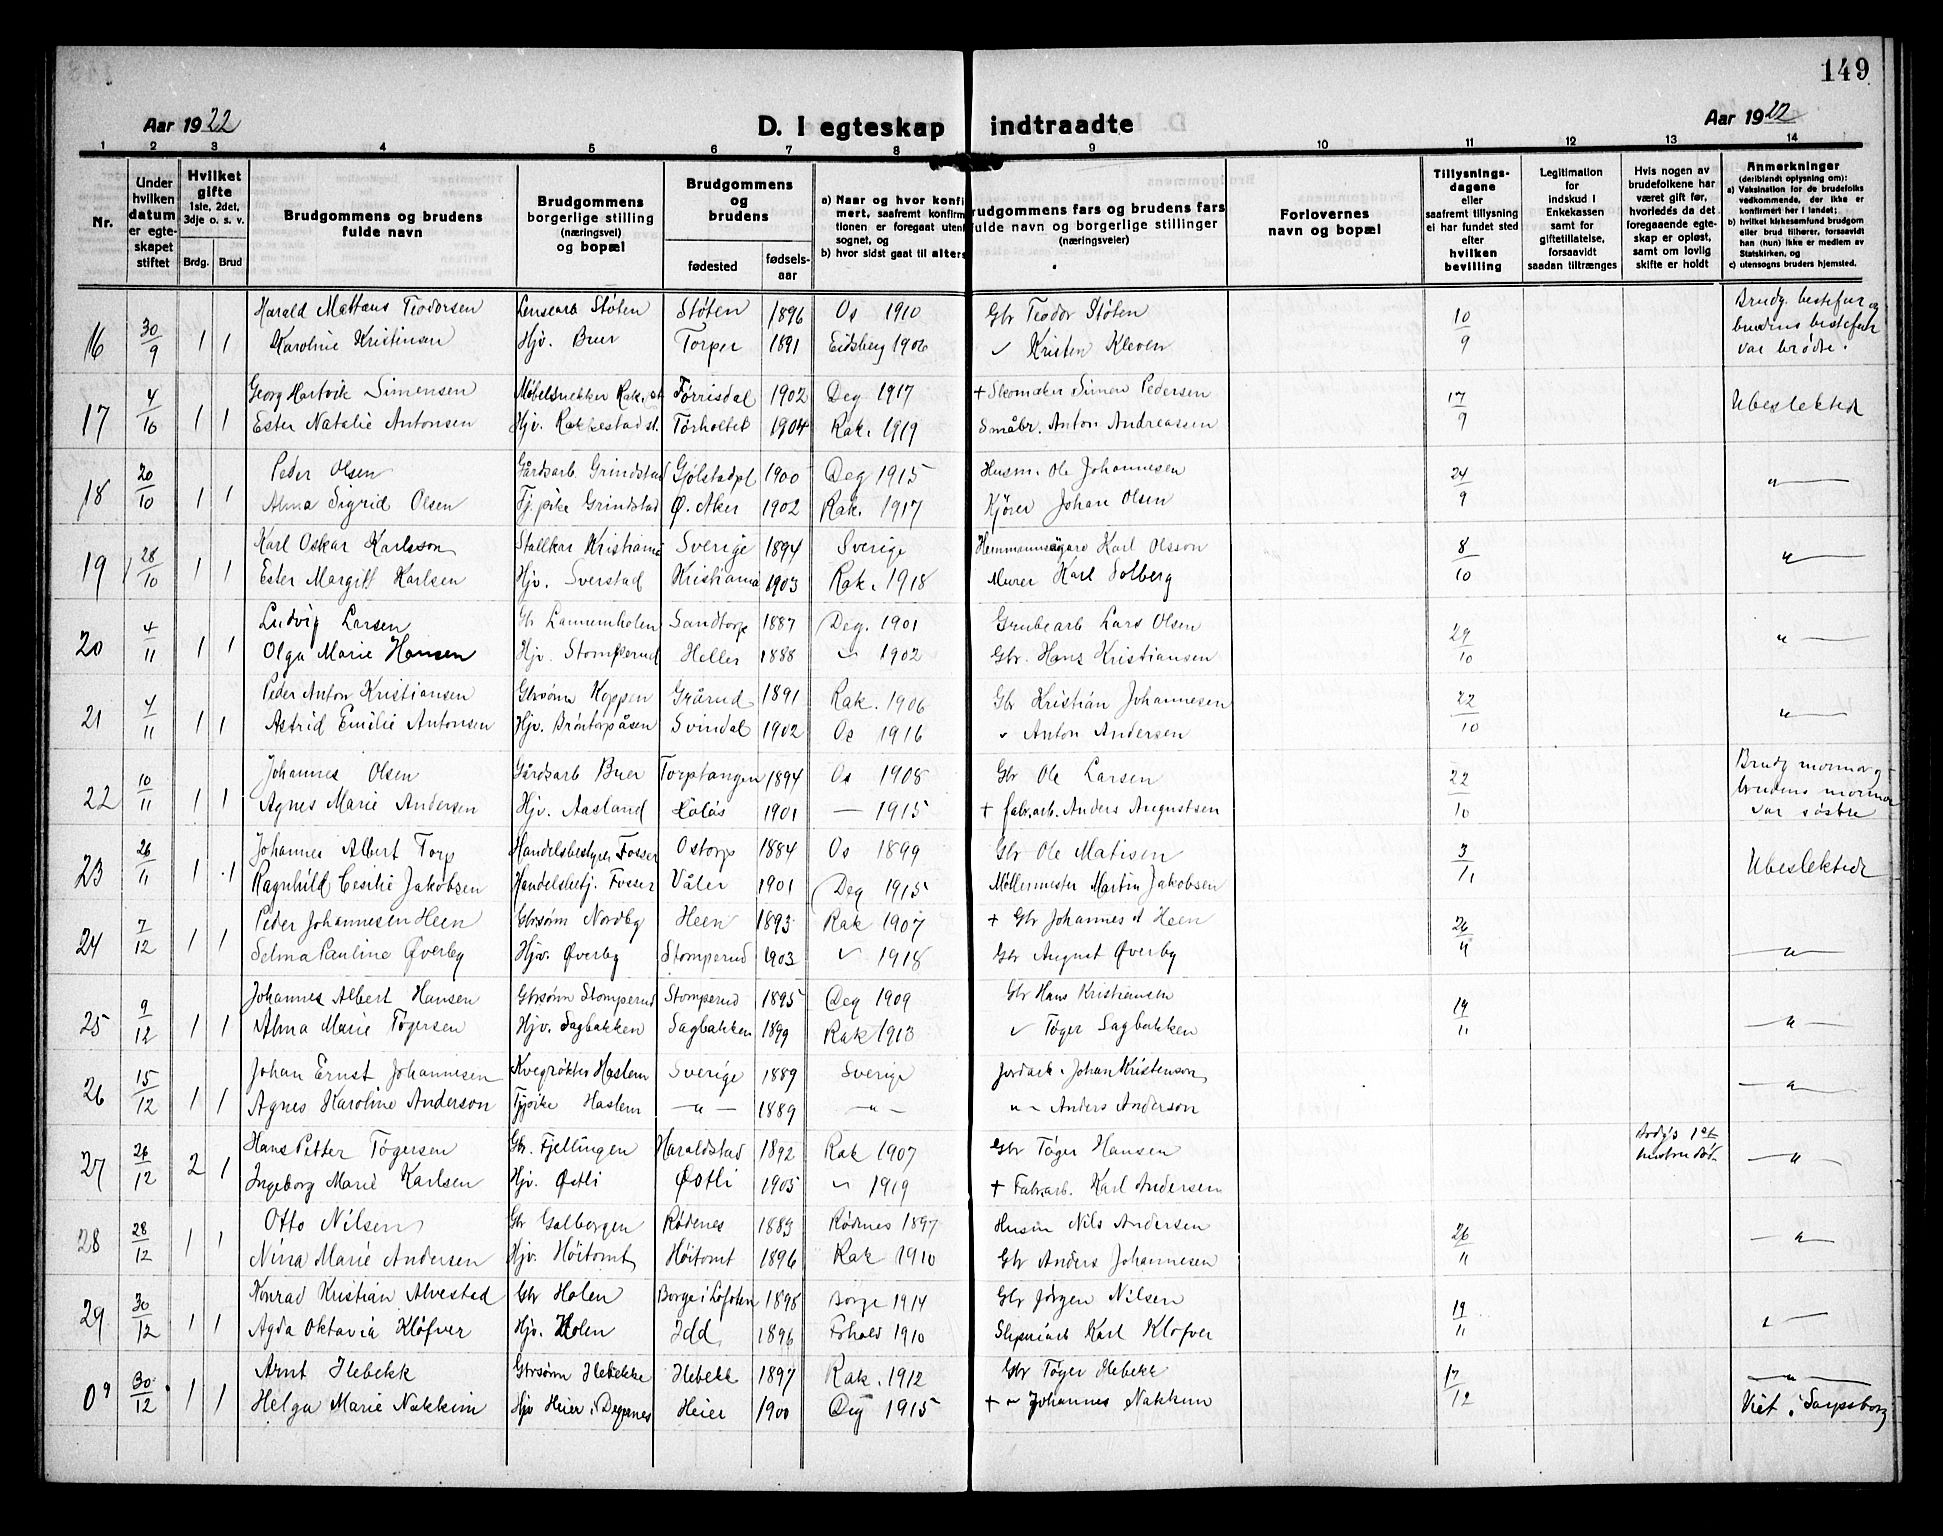 149
Aar 1922
D. I egteskap indtraadte
Aar 1922
1 2 3 4 5 6 7 8 9 10 11 12 13 14
Nr.
Under hvilken datum er egteskapet stiftet
Hvilket gifte 1ste, 2det, 3dje o. s. v.
Brdg. Brud
Brudgommens og brudens fulde navn
Brudgommens borgerlige stilling (næringsvei) og bopæl
Brudgommens og brudens
fødested fødselsaar
a) Naar og hvor konfirmert, saafremt konfirmationen er foregaat uten sognet, og
b) hvor sidst gaat til alters
rudgommens fars og brudens fars fulde navn og borgerlige stillinger (næringsveier)
Forlovernes navn og bopæl
Tillysningsdagene eller saafremt tillysning ei har fundet sted efter hvilken bevilling
Legitimation for indskud i Enkekassen samt for giftetillatelse, forsaavidt saadan tiltrænges
Hvis nogen av brudefolkene har været gift før, hvorledes da det foregaaende egteskap er opløst, samt om lovlig skifte er holdt
Anmerkninger (deriblandt oplysning om): a) Vaksination for de brudefolks vedkommende, der ikke er konfirmert her i landet; b) hvilket kirkesamfund brudgom eller brud tilhører, forsaavidt han (hun) ikke er medlem av Statskirken, og c) utensogns bruders hjemsted.
16 30/9 1 1 Harald Mattæus Teodorsen Støten Støten 1896 Os 1910 Gbr Teodor Støten 10/9 Brudg. bestefar og
Karoline Kristensen Hjv. Buer Torper 1891 Eidsberg 1906 " Kristen Kleven brudens bestefar
var brødre.
17 4/10 1 1 Georg Hartvik Simensen Møbelsnekker Rak. st. Førrisdal 1902 Deg 1917 + Skomaker Simen Pedersen 17/9 Ubeslektede
Ester Natalie Antonsen Hjv. Rakkestad st. Torholtet 1904 Rak. 1919 Småbr. Anton Andreassen
18 20/10 1 1 Peder Olsen Gårdsarb Grindstad Gjølstadpl 1900 Deg 1915 Husm. Ole Johannesen 24/9 "
Alma Sigrid Olsen Tj.pike Grindstad Ø. Aker 1902 Rak. 1917 Kjører Johan Olsen
19 28/10 1 1 Karl Oskar Karlsson Stallkar Kristiania Sverige 1894 Sverige Hemmansägare Karl Olsson 8/10 "
Ester Margitt Karlsen Hjv. Sverstad Kristiania 1903 Rak. 1918 Murer Karl Solberg
20 4/11 1 1 Ludvig Larsen Gbr Lannemholen Sandtorp 1887 Deg. 1901 Grubearb Lars Olsen 29/10 "
Olga Marie Hansen Hjv. Stomperud Heller 1888 " 1902 Gbr. Hans Kristiansen
21 4/11 1 1 Peder Anton Kristiansen Gbrsønn Koppen Grårud 1891 Rak. 1906 Gbr Kristian Johannesen 22/10 "
Astrid Emilie Antonsen Hjv. Brøntorpåsen Svindal 1902 Os 1916 " Anton Andersen
22 10/11 1 1 Johannes Olsen Gårdsarb Buer Torptangen 1894 Os 1908 Gbr Ole Larsen 22/10 Brudg mormor og
Agnes Marie Andersen Hjv. Aasland 1901 — 1915 + fabr.arb. Anders Augustsen brudens mormor
var søstre
23 26/11 1 1 Johannes Albert Torp Handelsbestyrer Fosser Ostorp 1884 Os 1899 Gbr Ole Matisen 3/11 Ubeslektede
Ragnhild Cesilie Jakobsen Handelsbetj. Fosser Våler 1901 Deg 1915 Møllermester Martin Jakobsen
24 7/12 1 1 Peder Johannesen Heen Gbrsønn Nordby Heen 1893 Rak 1907 + Gbr Johannes Heen 26/11 "
Selma Pauline Øverby Hjv. Øverby Stomperud 1903 " 1918 Gbr August Øverby
25 9/12 1 1 Johannes Albert Hansen Gbrsønn Stomperud Stomperud 1895 Deg 1909 Gbr Hans Kristiansen 19/11 "
Alma Marie Tøgersen Hjv. Sagbakken Sagbakken 1899 Rak 1913 " Tøger Sagbakken
26 15/12 1 1 Johan Ernst Johannesen Kvegrøkter Haslem Sverige 1889 Sverige Jordarb. Johan Kristenson "
Agnes Karoline Anderson Tjpike Haslem — " — 1889 — " — " Anders Anderson
27 26/12 2 1 Hans Petter Tøgersen Gbr. Fjellingen Haraldstad 1892 Rak 1907 Gbr Tøger Hansen Brdg's 1ste "
Ingeborg Marie Karlsen Hjv. Østli Østli 1905 " 1919 + Fabr.arb. Karl Andersen hustru død.
28 28/12 1 1 Otto Nilsen Gbr Galborgen Rødenes 1883 Rødenes 1897 Husm Nils Andersen 26/11 "
Nina Marie Andersen Hjv. Høitomt Høitomt 1896 Rak 1910 Gbr Anders Johannesen
29 30/12 1 1 Konrad Kristian Alvestad Gbr Holen Borge i Lofoten 1898 Borge 1914 Gbr Jørgen Nilsen 19/11 "
Agda Oktavia Kløfver Hjv. Holen Idd 1896 1910 Karl Kløfver
30/12 1 1 Arnt Hebekk Gbrsønn Hebekke Hebekk 1897 Rak. 1912 Gbr Tøger Hebekk 17/12 "
Helga Marie Nakkim Hjv Heier i Degernes Heier 1900 Deg 1915 + " Johannes Nakkim Viet i Sarpsborg